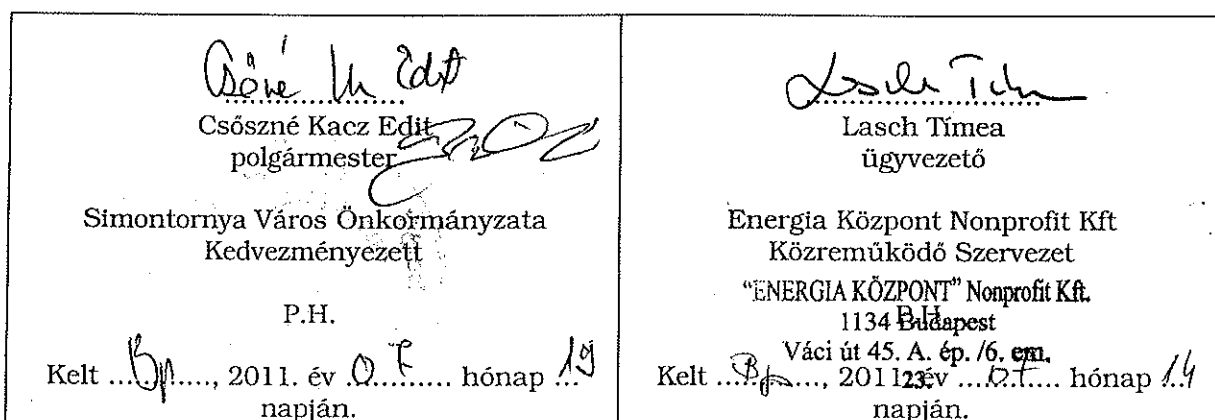 Csőszné Kacz Edit
polgármester
Simontornya Város Önkormányzata
Kedvezményezett
P.H.
Kelt ...Bp....., 2011. év .07......... hónap ...19
napján.
Lasch Tímea
ügyvezető
Energia Központ Nonprofit Kft
Közreműködő Szervezet
"ENERGIA KÖZPONT" Nonprofit Kft.
P.H.
1134 Budapest
Váci út 45. A. ép. /6. em.
23.
Kelt ...Bp....., 2011. év .....07.... hónap 14
napján.